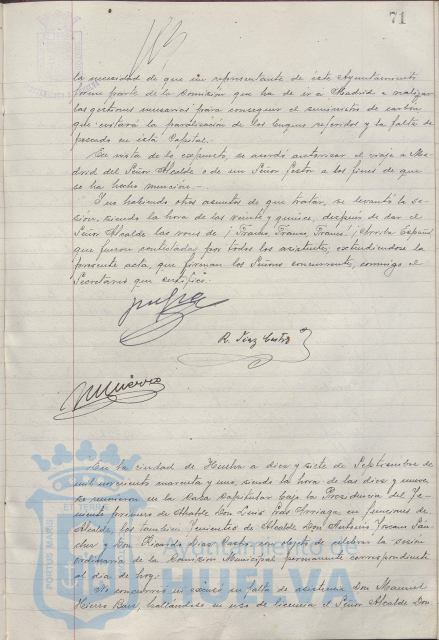 71
la necesidad de que un representante de este Ayuntamiento
forme parte de la Comisión que ha de ir a Madrid a realizar
las gestiones necesarias para conseguir el suministro de carbón
que evitará la paralización de los buques referidos y la falta de
pescado en esta Capital.-
En vista de lo expuesto, se acordó autorizar el viaje a Ma-
drid del Señor Alcalde o de un Señor Gestor a los fines de que
se ha hecho mención.-
Y no habiendo otros asuntos de que tratar, se levantó la se-
sión, siendo la hora de las veinte y quince, después de dar el
Señor Alcalde las voces de ¡Franco, Franco, Franco! ¡Arriba España!
que fueron contestadas por todos los asistentes, extendiéndose la
presente acta, que firman los Señores concurrentes, conmigo el
Secretario que certifico.
R. Díaz Castro
En la ciudad de Huelva a diez y siete de Septiembre de
mil novecientos cuarenta y uno, siendo la hora de las diez y nueve
se reunieron en la Casa Capitular bajo la Presidencia del Te-
niente primero de Alcalde Don Luis Arriaga en funciones de
Alcalde, los también Tenientes de Alcalde Don Antonio Sán-
chez y Don Ricardo Díaz Castro, con objeto de celebrar la sesión
ordinaria de la Comisión Municipal permanente correspondiente
al día de hoy.
No concurren ni excusan su falta de asistencia Don Manuel
hallándose en uso de licencia el Señor Alcalde Don
PORTUS MARIS
Ayuntamiento de
HUELVA